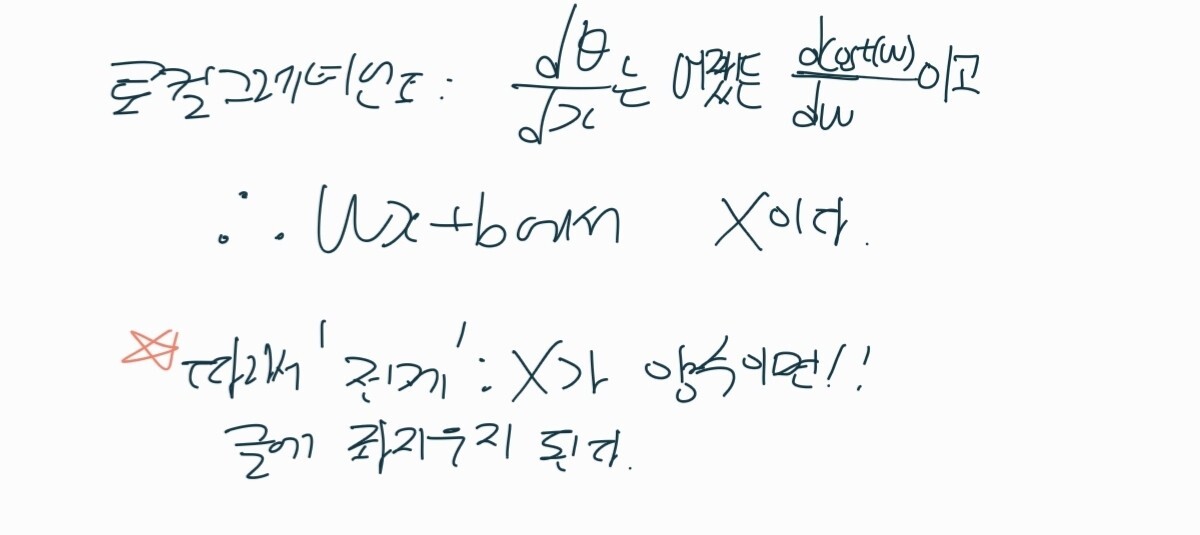 로컬 그레디언트 : dθ/dx는 어쨌든 dCost(w)/dw이고
∴ Wx+b에서 X이다.
☆따라서 '전제' : X가 양수이면!!
글에 좌지우지 된다.